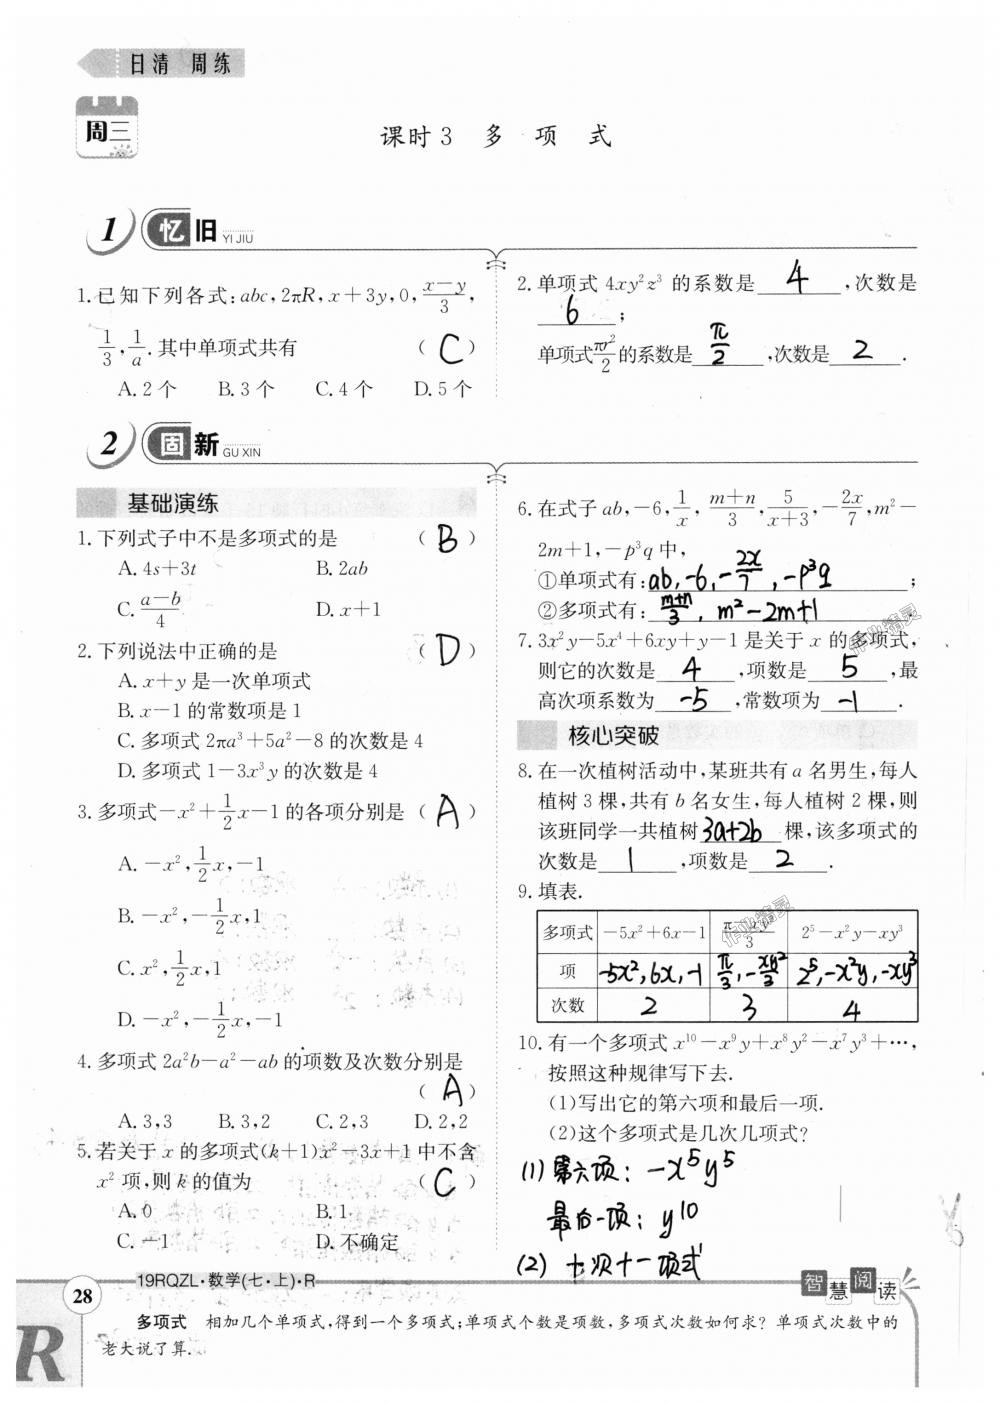 日清 周练
周三
课时3 多项式
1 忆旧 YI JIU
1.已知下列各式:abc,2πR,x+3y,0,(x-y)/3,
1/3,1/a.其中单项式共有 ( C )
A.2个 B.3个 C.4个 D.5个
2.单项式4xy²z³的系数是 4 ,次数是
6 ;
单项式πr²/2的系数是 π/2 ,次数是 2 .
2 固新 GU XIN
基础演练
1.下列式子中不是多项式的是 ( B )
A.4s+3t B.2ab
C.(a-b)/4 D.x+1
2.下列说法中正确的是 ( D )
A.x+y是一次单项式
B.x-1的常数项是1
C.多项式2πa³+5a²-8的次数是4
D.多项式1-3x³y的次数是4
3.多项式-x²+1/2x-1的各项分别是( A )
A.-x²,1/2x,-1
B.-x²,-1/2x,1
C.x²,1/2x,1
D.-x²,-1/2x,-1
4.多项式2a²b-a²-ab的项数及次数分别是
( A )
A.3,3 B.3,2 C.2,3 D.2,2
5.若关于x的多项式(k+1)x²-3x+1中不含
x²项,则k的值为 ( C )
A.0 B.1
C.-1 D.不确定
6.在式子ab,-6,1/x,(m+n)/3,5/(x+3),-2x/7,m²-
2m+1,-p³q中,
①单项式有:ab,-6,-2x/7,-p³q ;
②多项式有:(m+n)/3,m²-2m+1 .
7.3x²y-5x⁴+6xy+y-1是关于x的多项式,
则它的次数是 4 ,项数是 5 ,最
高次项系数为 -5 ,常数项为 -1 .
核心突破
8.在一次植树活动中,某班共有a名男生,每人
植树3棵,共有b名女生,每人植树2棵,则
该班同学一共植树 3a+2b 棵,该多项式的
次数是 1 ,项数是 2 .
9.填表.
多项式 -5x²+6x-1 (π-xy²)/3 2⁵-x²y-xy³
项 -5x²,6x,-1 π/3,-xy²/3 2⁵,-x²y,-xy³
次数 2 3 4
10.有一个多项式x¹⁰-x⁹y+x⁸y²-x⁷y³+…,
按照这种规律写下去.
(1)写出它的第六项和最后一项.
(2)这个多项式是几次几项式?
(1) 第六项: -x⁵y⁵
最后一项: y¹⁰
(2) 十次十一项式
19RQZL·数学(七·上)·R
智慧阅读
28
多项式 相加几个单项式,得到一个多项式;单项式个数是项数,多项式次数如何求?单项式次数中的
老大说了算.
R
作业精灵
作业精灵